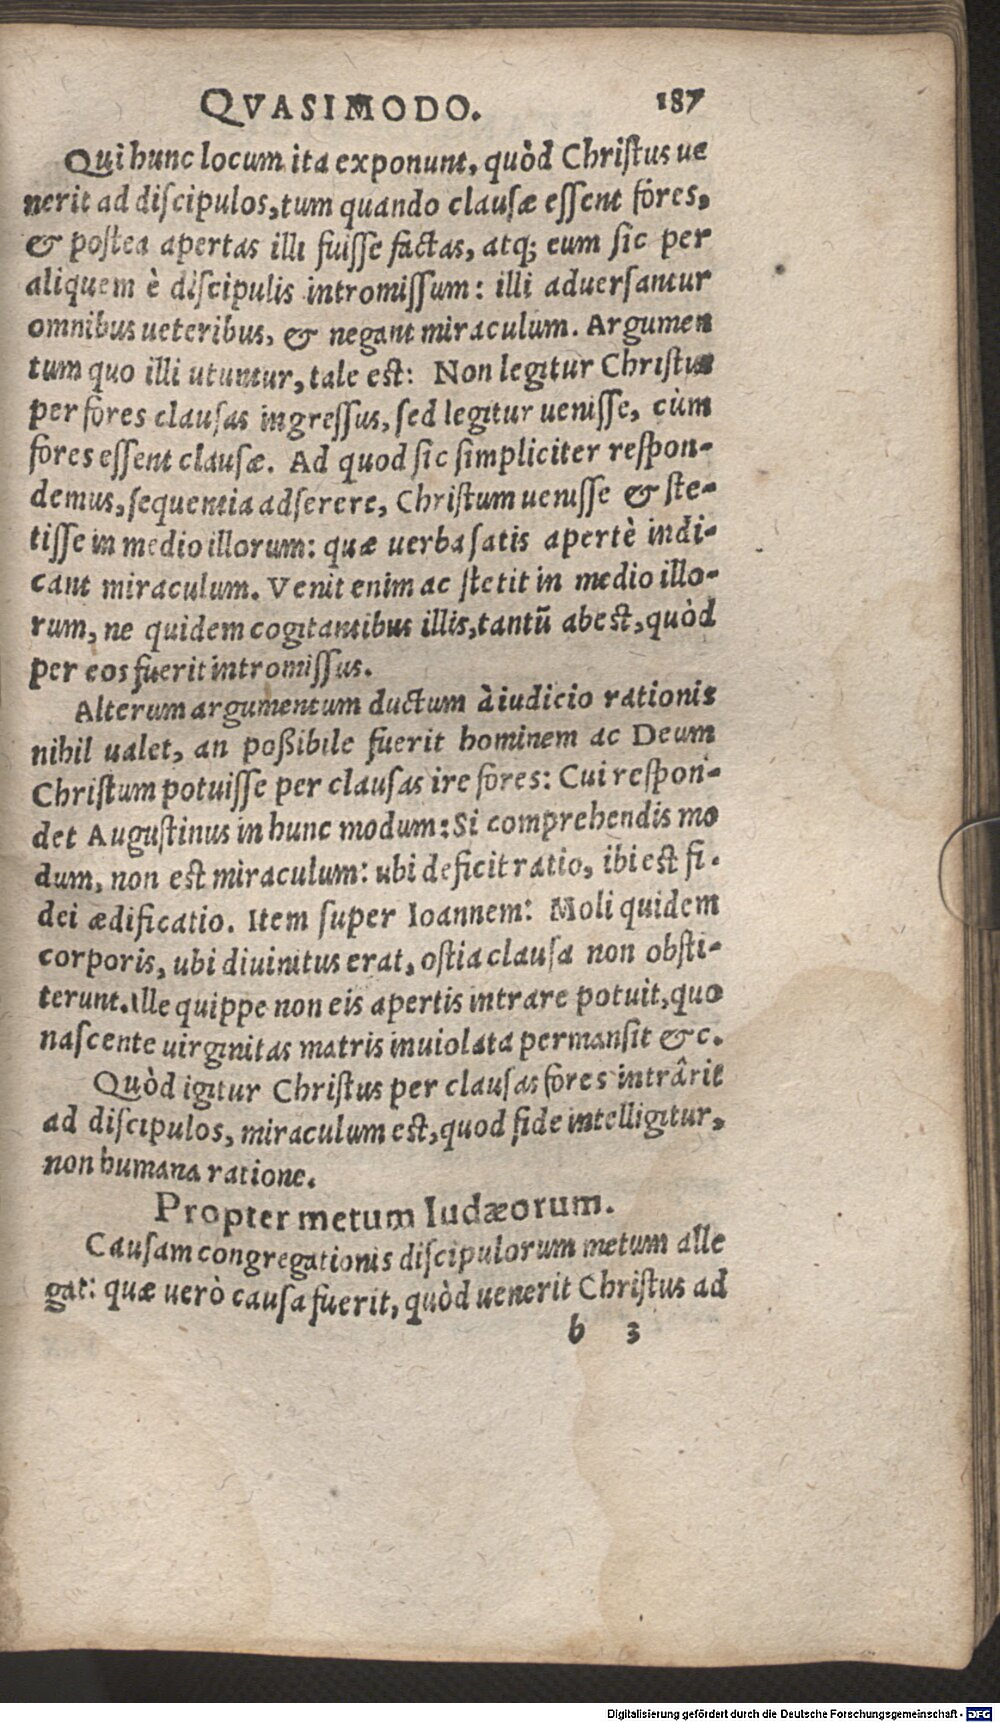 QVASIMODO. 187
Qui hunc locum ita exponunt, quòd Christus ue
nerit ad discipulos, tum quando clausæ essent fores,
& postea apertas illi fuisse factas, atq; eum sic per
aliquem è discipulis intromissum: illi aduersantur
omnibus ueteribus, & negant miraculum. Argumen
tum quo illi utuntur, tale est: Non legitur Christus
per fores clausas ingressus, sed legitur uenisse, cùm
fores essent clausæ. Ad quod sic simpliciter respon-
demus, sequentia adserere, Christum uenisse & ste-
tisse in medio illorum: quæ uerba satis apertè indi-
cant miraculum. Venit enim ac stetit in medio illo-
rum, ne quidem cogitantibus illis, tantū abest, quòd
per eos fuerit intromissus.
Alterum argumentum ductum à iudicio rationis
nihil ualet, an poßibile fuerit hominem ac Deum
Christum potuisse per clausas ire fores: Cui respon-
det Augustinus in hunc modum: Si comprehendis mo
dum, non est miraculum: ubi deficit ratio, ibi est fi-
dei ædificatio. Item super Ioannem: Moli quidem
corporis, ubi diuinitus erat, ostia clausa non obsti-
terunt. Ille quippe non eis apertis intrare potuit, quo
nascente uirginitas matris inuiolata permansit &c.
Quòd igitur Christus per clausas fores intrârit
ad discipulos, miraculum est, quod fide intelligitur,
non humana ratione.
Propter metum Iudæorum.
Causam congregationis discipulorum metum alle
gat: quæ uerò causa fuerit, quòd uenerit Christus ad
b 3
Digitalisierung gefördert durch die Deutsche Forschungsgemeinschaft - DFG